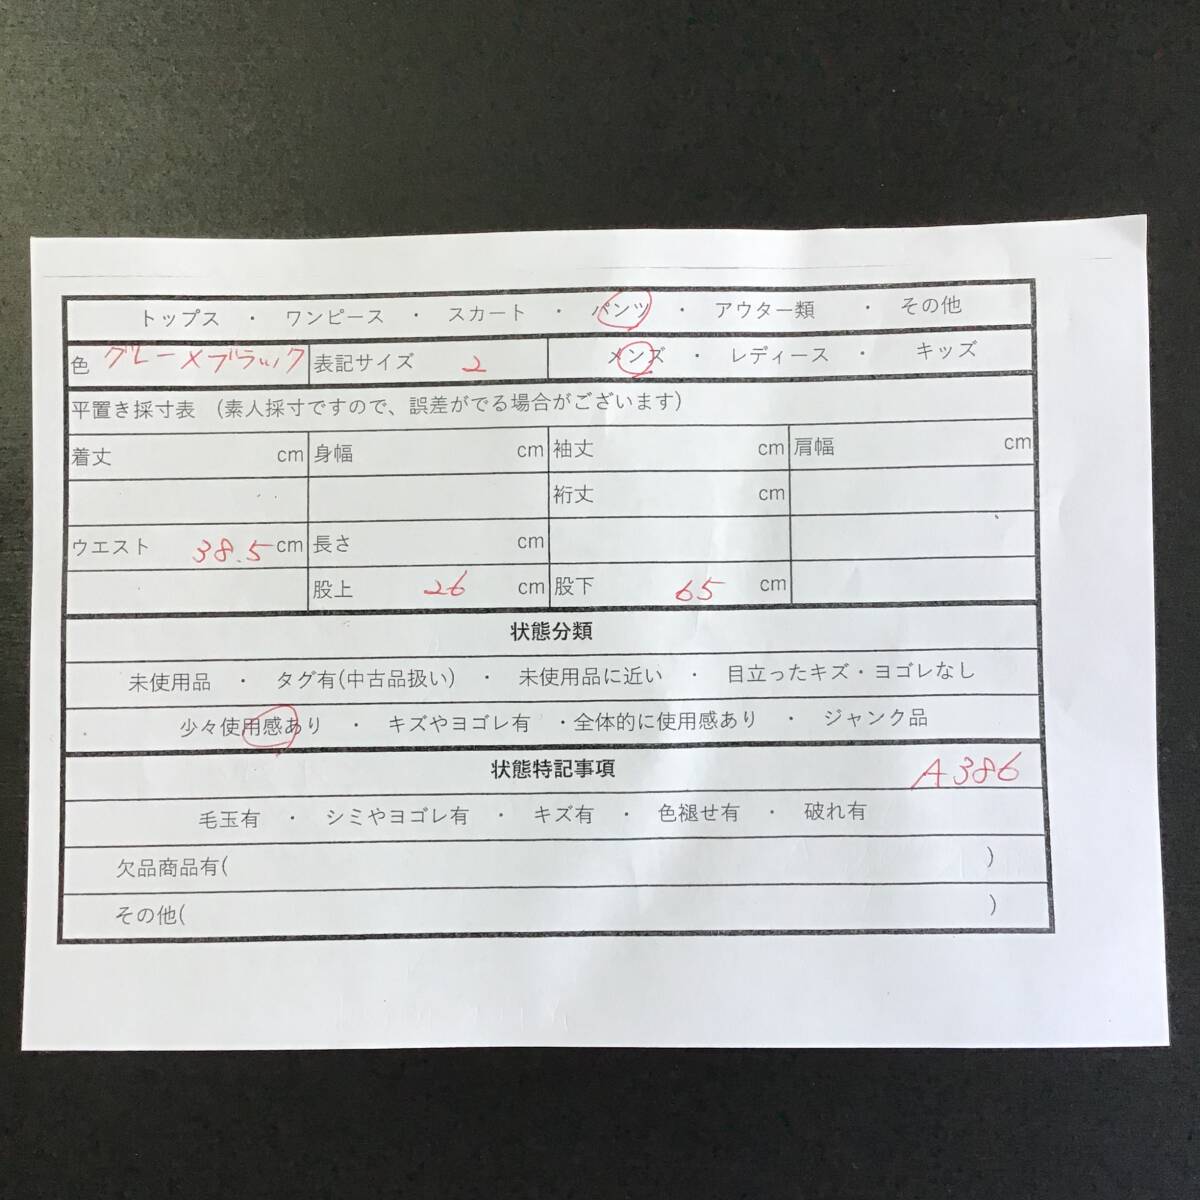 トップス ・ ワンピース ・ スカート ・ パンツ ・ アウター類 ・ その他
色 グレー×ブラック 表記サイズ 2 メンズ ・ レディース ・ キッズ
平置き採寸表 (素人採寸ですので、誤差がでる場合がございます)
着丈 cm 身幅 cm 袖丈 cm 肩幅 cm
裄丈 cm
ウエスト 38.5 cm 長さ cm
股上 26 cm 股下 65 cm
状態分類
未使用品 ・ タグ有(中古品扱い) ・ 未使用品に近い ・ 目立ったキズ・ヨゴレなし
少々使用感あり ・ キズやヨゴレ有 ・全体的に使用感あり ・ ジャンク品
状態特記事項 A386
毛玉有 ・ シミやヨゴレ有 ・ キズ有 ・ 色褪せ有 ・ 破れ有
欠品商品有( )
その他( )